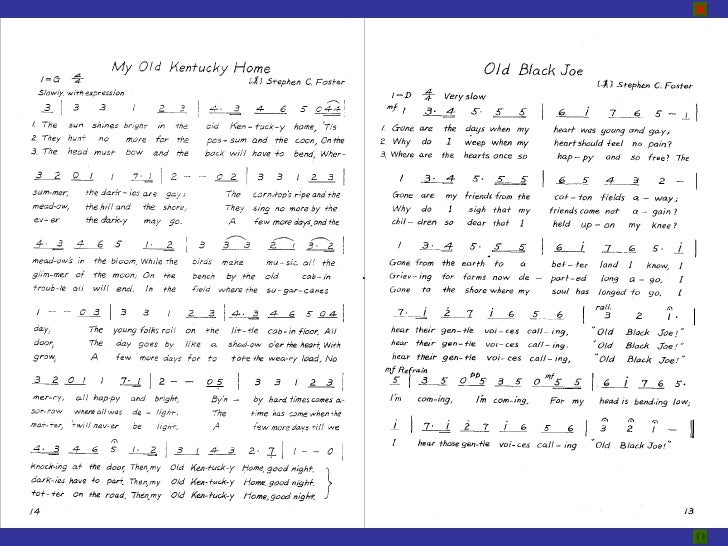 My Old Kentucky Home
1=G 4/4
[美] Stephen C. Foster
Slowly, with expression
3 | 3 3 1 2 3 | 4. 3 4 6 5 0 4 4 |
1. The sun shines bright in the old Ken-tuck-y home, 'Tis
2. They hunt no more for the pos-sum and the coon, On the
3. The head must bow and the back will have to bend, Wher-
3 2 0 1 1 7. 1 | 2 - - 0 2 | 3 3 1 2 3 |
summer, the dark-ies are gay; The corn-top's ripe and the
mead-ow, the hill and the shore; They sing no more by the
ev-er the dark-y may go. A few more days, and the
4. 3 4 6 5 1. 2 | 3 3 3 2 1 3. 2 |
mead-ow's in the bloom, While the birds make mu-sic all the
glim-mer of the moon, On the bench by the old cab-in
troub-le all will end. In the field where the su-gar-canes
1 - - 0 3 | 3 3 1 2 3 | 4. 3 4 6 5 0 4 |
day, The young folks roll on the lit-tle cab-in floor, All
door, The day goes by like a shad-ow o'er the heart, With
grow, A few more days for to tote the wea-ry load, No
3 2 0 1 1 7. 1 | 2 - - 0 5 | 3 3 1 2 3 |
mer-ry, all hap-py and bright, By'n- by hard times comes a-
sor-row where all was de-light. The time has come when the
mat-ter, 'twill nev-er be light, A few more days till we
4. 3 4 6 5 1. 2 | 3 1 4 3 2. 7 | 1 - - 0 |
Knock-ing at the door, Then, my Old Ken-tuck-y Home, good night.
dark-ies have to part. Then, my Old Ken-tuck-y Home, good night.
tot-ter on the road. Then, my Old Ken-tuck-y Home, good night.
14
Old Black Joe
[美] Stephen C. Foster
1=D 4/4 Very slow
mf 1 3. 4 5. 5 5 | 6 i 7 6 5 - 1 |
1. Gone are the days when my heart was young and gay;
2. Why do I weep when my heart should feel no pain?
3. Where are the hearts once so hap-py and so free? The
1 3. 4 5. 5 5 | 6 5 4 3 2 - |
Gone are my friends from the cot-ton fields a-way;
Why do I sigh that my friends come not a-gain?
chil-dren so dear that I held up-on my knee?
1 3. 4 5. 5 5 | 6 i 7 6 5. i |
Gone from the earth to a bet-ter land I know, I
Griev-ing for forms now de-part-ed long a-go. I
Gone to the shore where my soul has longed to go. I
rall.
7. i 2 7 i 6 5 6 | 3 2 1. |
hear their gen-tle voi-ces call-ing, "Old Black Joe!"
hear their gen-tle voi-ces call-ing, "Old Black Joe!"
hear their gen-tle voi-ces call-ing, "Old Black Joe!"
mf Refrain pp mf
5 | 3 5 0 5 3 5 0 5 5 | 6 i 7 6 5.
I'm com-ing, I'm com-ing, For my head is bend-ing low;
i | 7. i 2 7 i 6 5 6 | 3 2 1 - |
I hear those gen-tle voi-ces call-ing "Old Black Joe!"
13